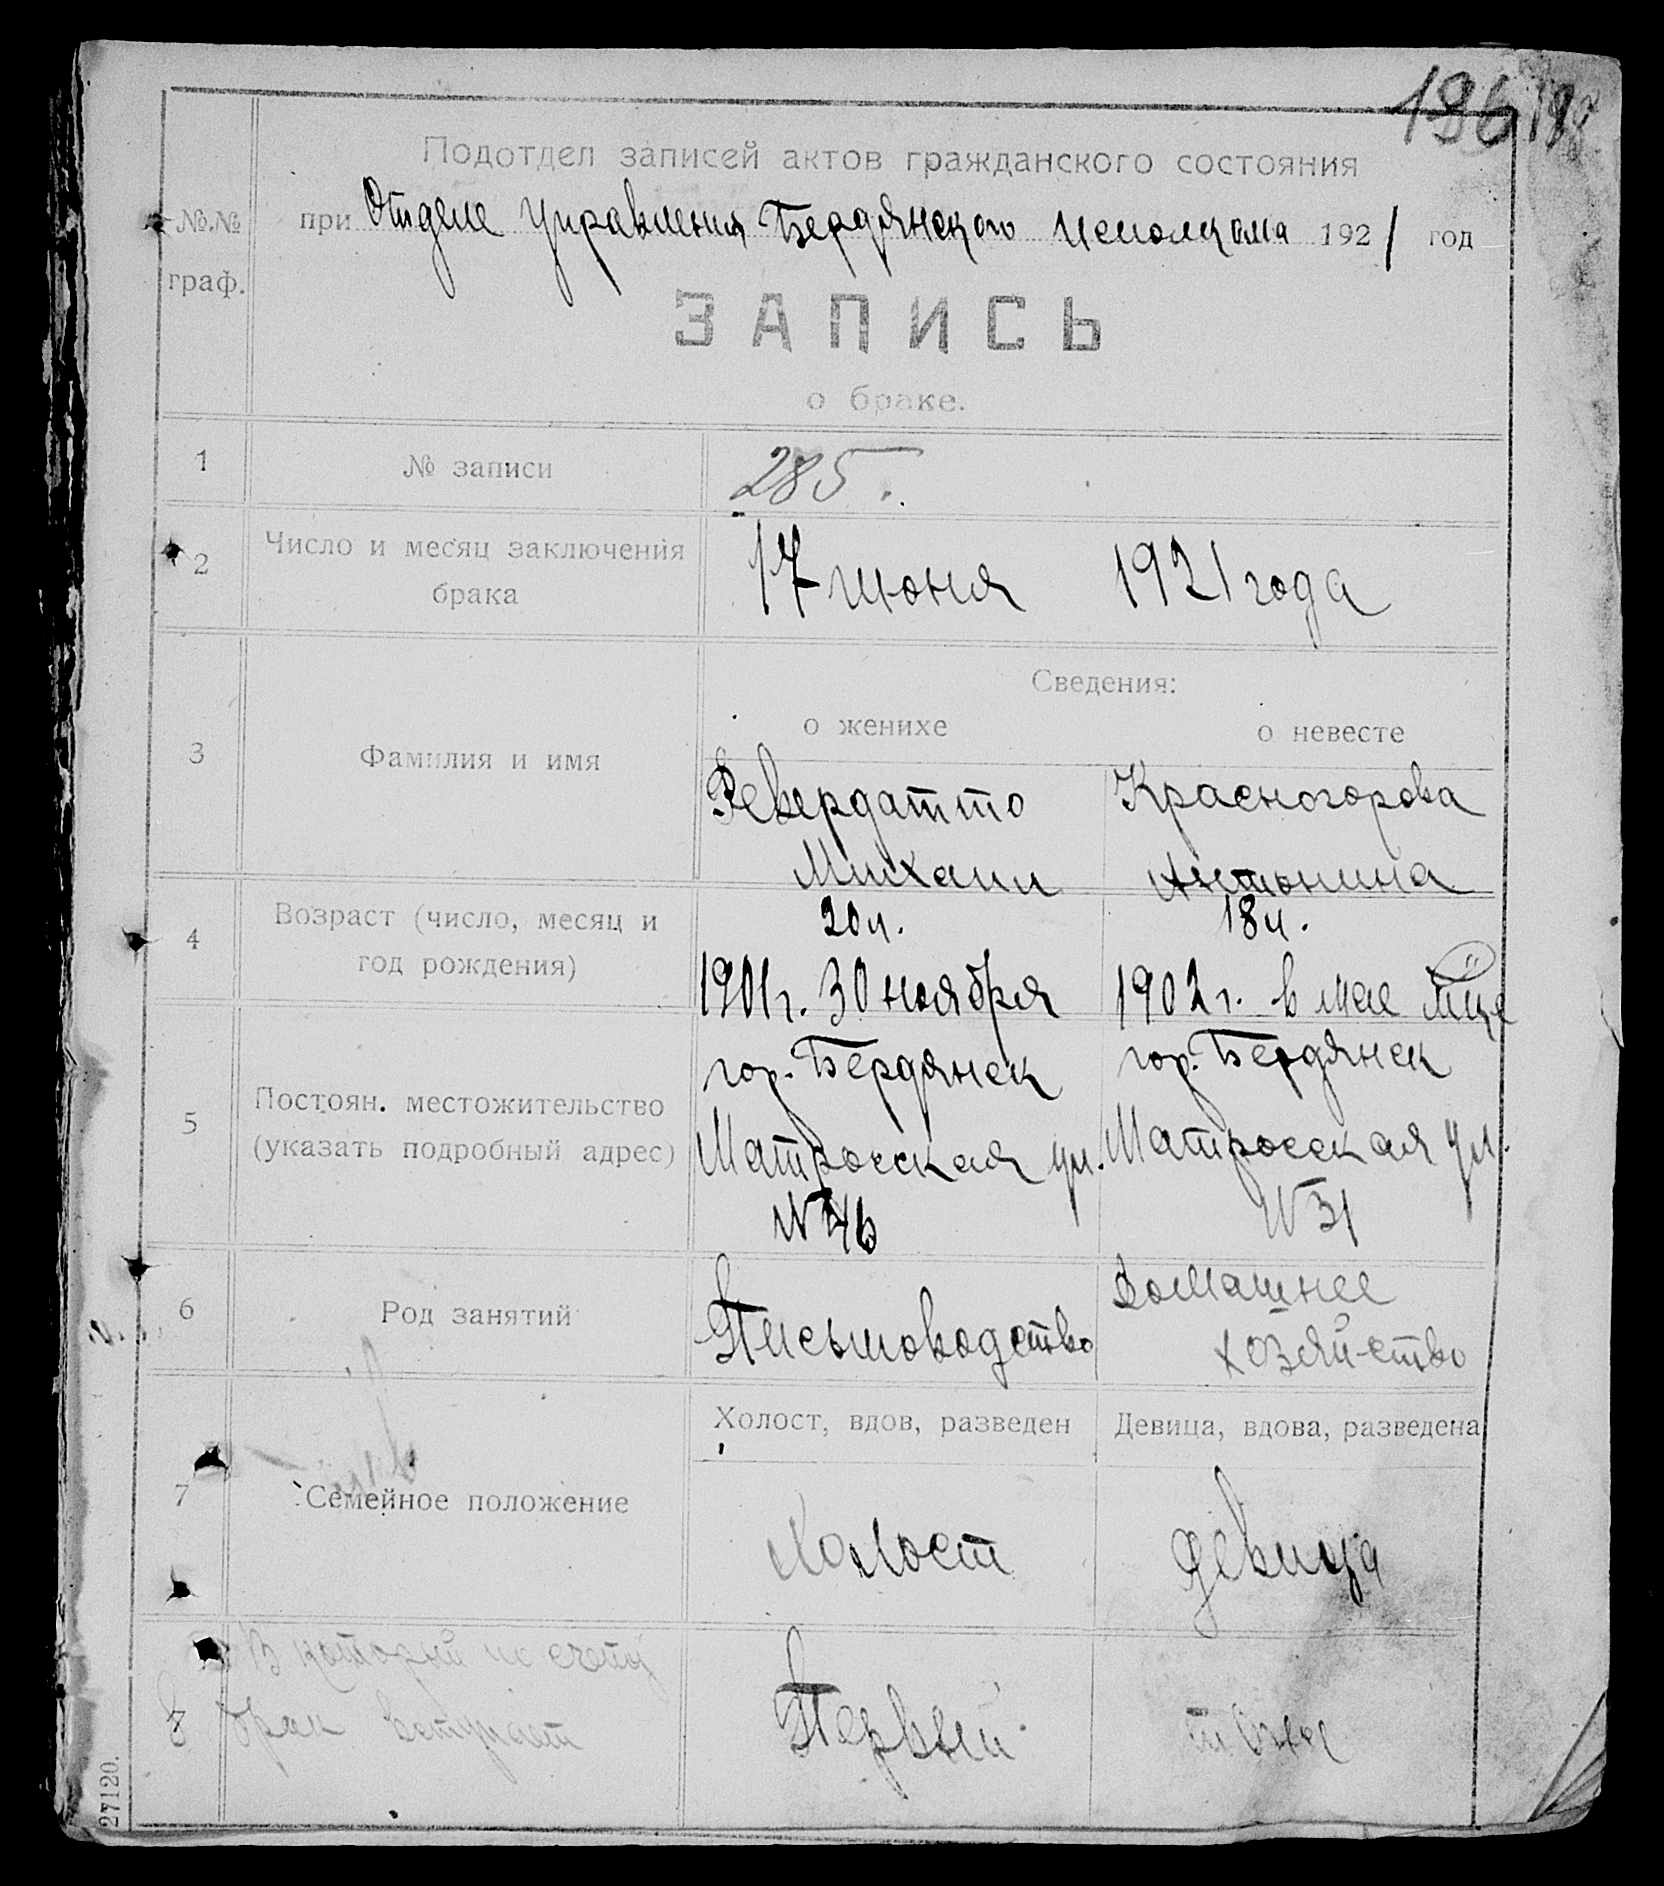 196
Подотдел записей актов гражданского состояния
№.№ граф.
при Отделе Управления Бердянского Исполкома 1921 год
ЗАПИСЬ
о браке.
1 № записи 285.
2 Число и месяц заключения брака 17 июня 1921 года
Сведения:
о женихе о невесте
3 Фамилия и имя
Ревердатто Красногорова
Михаил Антонина
4 Возраст (число, месяц и год рождения)
20 л. 18 л.
1901 г. 30 ноября 1902 г. в мае м-це
5 Постоян. местожительство (указать подробный адрес)
гор. Бердянск гор. Бердянск
Матросская ул. Матросская ул.
№ 46 № 31
6 Род занятий
Письмоводство Домашнее
хозяйство
Холост, вдов, разведен Девица, вдова, разведена
7 Семейное положение
Холост девица
8 В который по счету
брак вступает Первый тоже
27120.